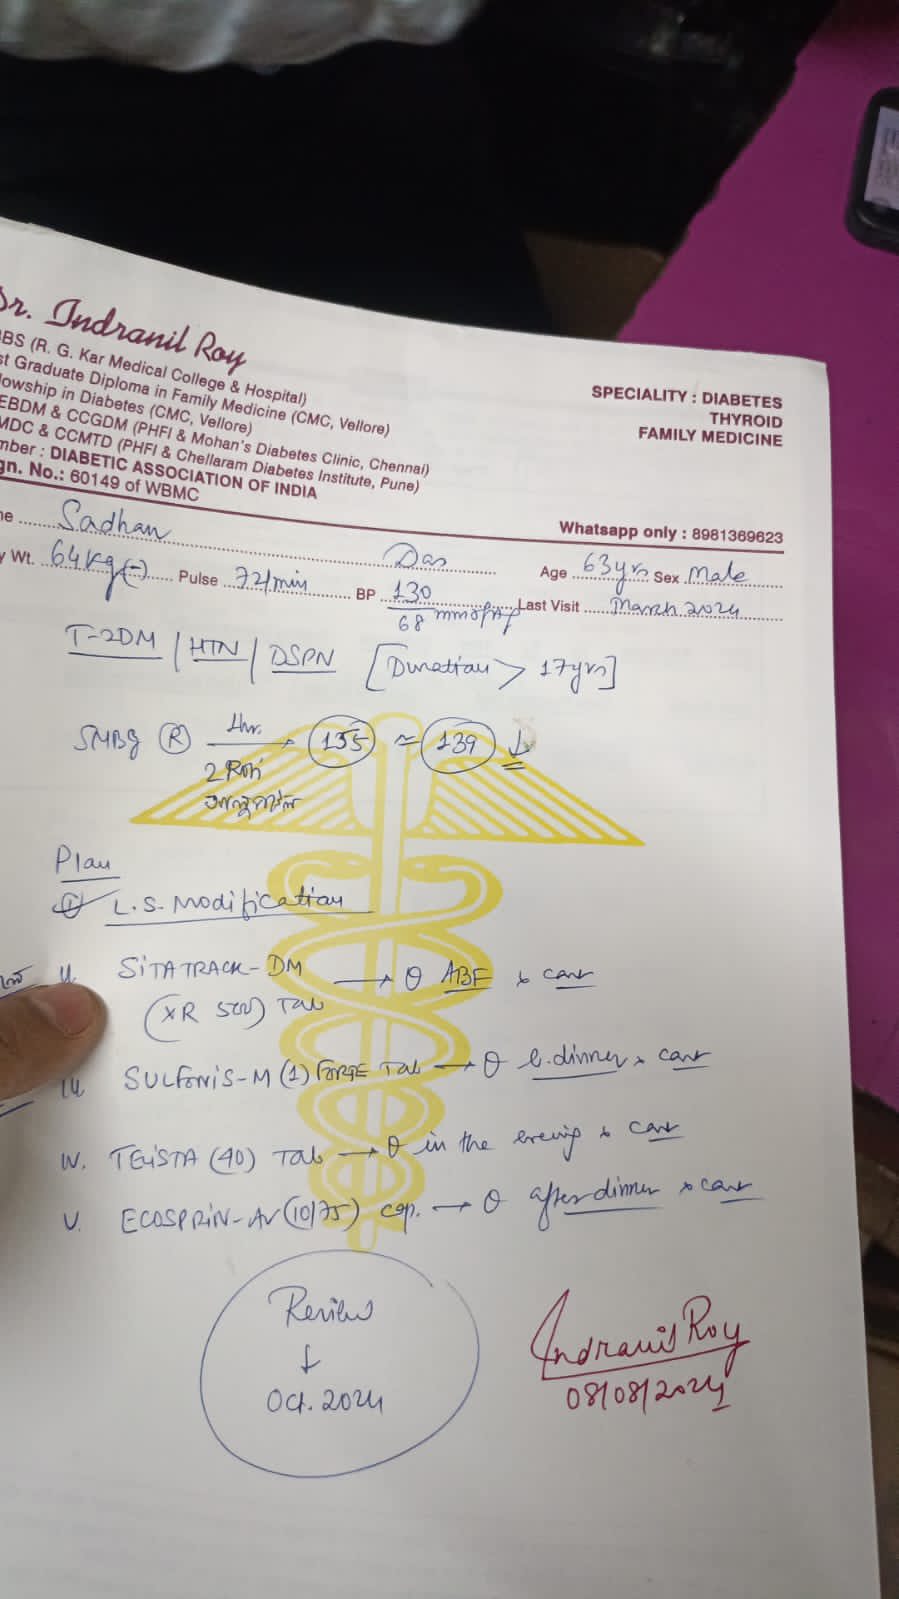 Dr. Indranil Roy
BBS (R. G. Kar Medical College & Hospital)
st Graduate Diploma in Family Medicine (CMC, Vellore)
lowship in Diabetes (CMC, Vellore)
EBDM & CCGDM (PHFI & Mohan's Diabetes Clinic, Chennai)
MDC & CCMTD (PHFI & Chellaram Diabetes Institute, Pune)
mber : DIABETIC ASSOCIATION OF INDIA
gn. No.: 60149 of WBMC
SPECIALITY : DIABETES
THYROID
FAMILY MEDICINE
Whatsapp only : 8981369623
me Sadhan Das Age 63yrs Sex Male
y Wt. 64kg(-) Pulse 72/min BP 130/68 mmofHg Last Visit March 2024
T-2DM / HTN / DSPN [Duration > 17yrs]
SMBG (R) 1hr. → 135 ≈ 139 ↓
2 Roti
Plan
L.S. Modification
SITATRACK-DM → ABF x cont
(XR 500) Tab
SULFONIS-M (1) FORTE Tab → b. dinner x cont
IV. TELISTA (40) Tab → in the evening x cont
V. ECOSPRIN-AV (10/75) cap. → after dinner x cont
Review
↓
Oct. 2024
Indranil Roy
08/08/2024